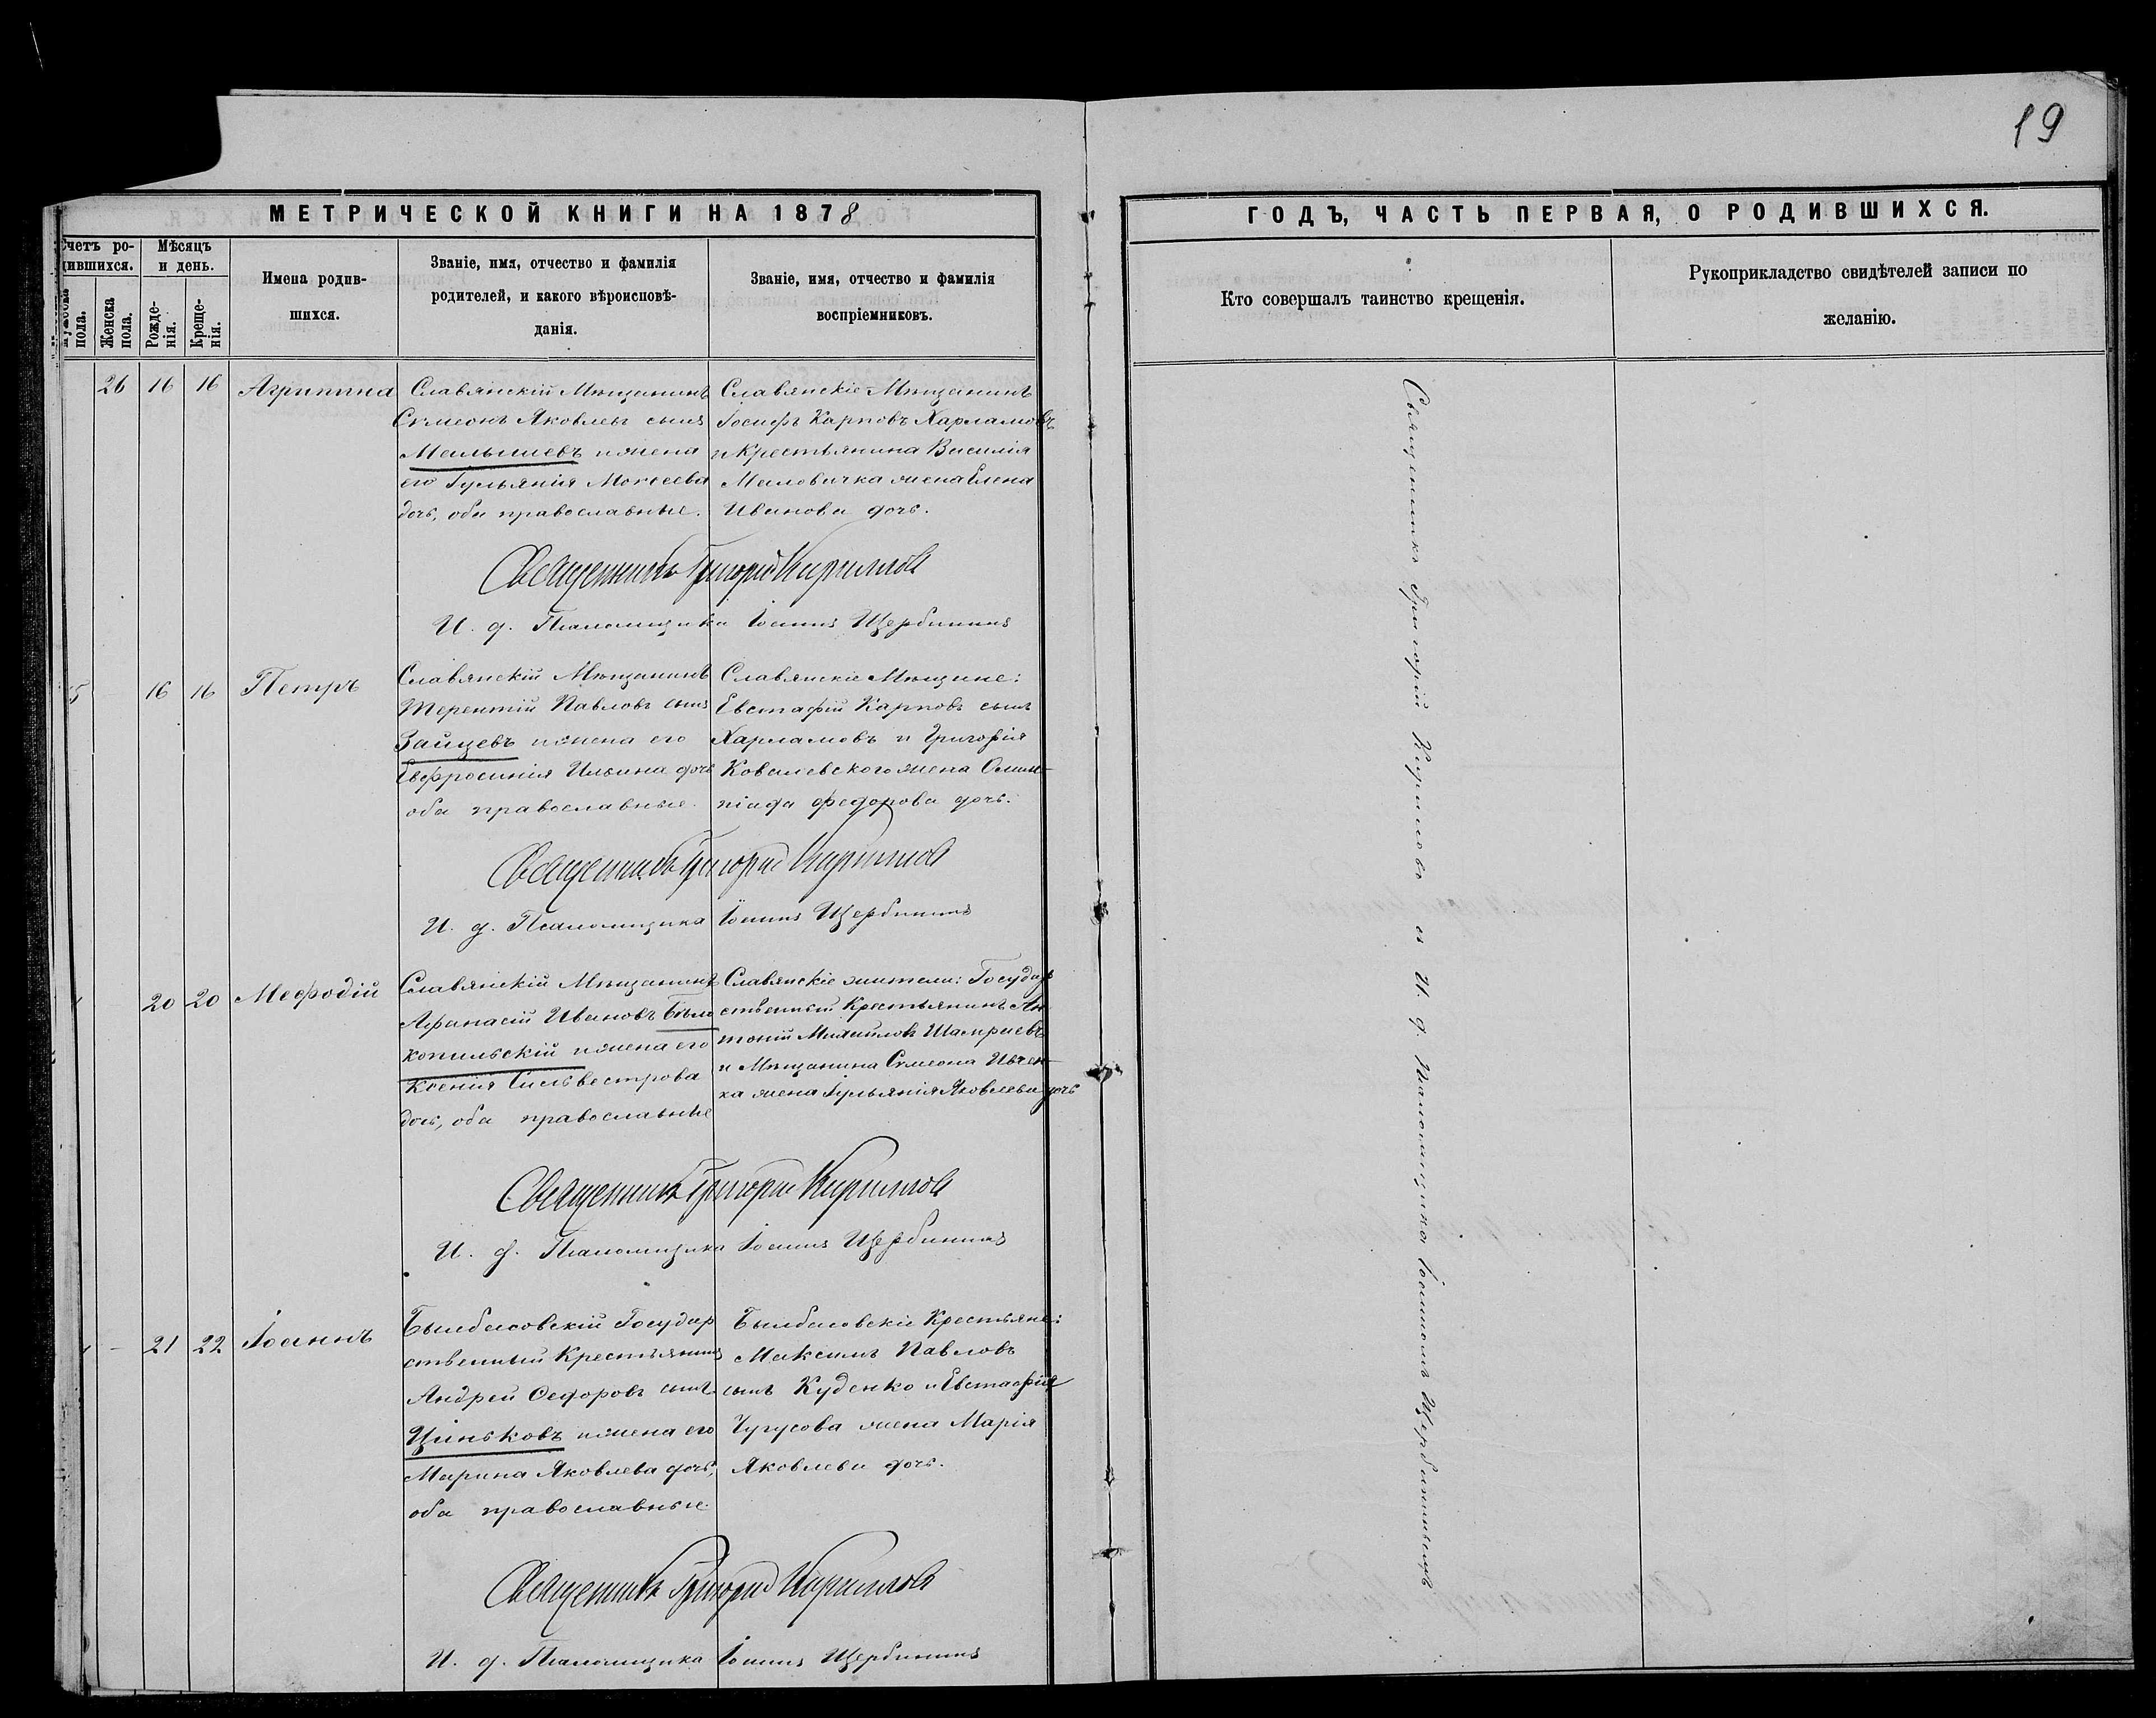 19
МЕТРИЧЕСКОЙ КНИГИ НА 1878
Счетъ ро-
дившихся.
Мѣсяцъ
и день.
Мужеска
пола.
Женска
пола.
Рожде-
нія.
Креще-
нія.
Имена родив-
шихся.
Званіе, имя, отчество и фамилія
родителей, и какого вѣроисповѣ-
данія.
Званіе, имя, отчество и фамилія
воспріемниковъ.
26 16 16 Агрипина
Славянскій Мѣщанинъ
Сѵмеонъ Яковлевъ сынъ
Малышевъ и жена
его Іульянія Мокеева
дочь, оба православные.
Славянскіе Мѣщанинъ
Іосифъ Карповъ Харламовъ
и Крестьянина Василія
жена Елена
Иванова дочь.
Священникъ Григорій Кириллов
И. д. Псаломщика Іоаннъ Щербининъ
5 16 16 Петръ
Славянскій Мѣщанинъ
Терентій Павловъ сынъ
Зайцевъ и жена его
Евфросинія Ильина дочь
оба православные.
Славянскіе Мѣщане:
Евстафій Карповъ сынъ
Харламовъ и Григорія
Ковалевского жена Олим-
піада Федорова дочь.
Священникъ Григорій Кириллов
И. д. Псаломщика Іоаннъ Щербининъ
20 20 Меѳодій
Славянскій Мѣщанинъ
Афанасій Ивановъ Бѣло
копильскій и жена его
Ксенія Сильвестрова
дочь, оба православные
Славянскіе жители: Государ
ственный Крестьянинъ Ан
тоній Михайловъ
и Мѣщанина Сѵмеона Ивчен-
ка жена Іульянія Яковлева дочь
Священникъ Григорій Кириллов
И. д. Псаломщика Іоаннъ Щербининъ
- 21 22 Іоаннъ
Былбасовскій Государ
ственный Крестьянинъ
Андрей Ѳедоровъ сынъ
Циньковъ и жена его
Марина Яковлева дочь,
оба православные.
Былбасовскіе Крестьяне:
Максимъ Павловъ
сынъ Куденко и Евстафія
Чугусова жена Марія
Яковлева дочь.
Священникъ Григорій Кириллов
И. д. Псаломщика Іоаннъ Щербининъ
ГОДЪ, ЧАСТЬ ПЕРВАЯ, О РОДИВШИХСЯ.
Кто совершалъ таинство крещенія.
Рукоприкладство свидѣтелей записи по
желанію.
Священникъ Григорій Кириловъ съ И. д. Псаломщика Іоанномъ Щербининымъ